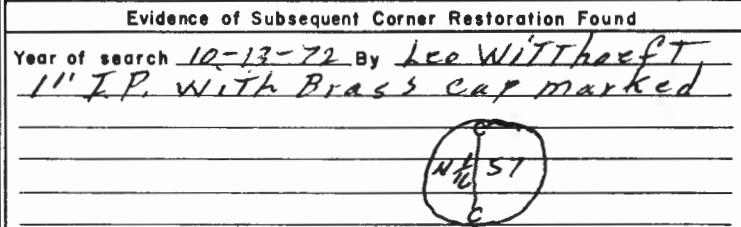 Evidence of Subsequent Corner Restoration Found
Year of search 10-13-72 By Leo Witthoeft
1" I.P. With Brass cap marked
C
N 1/16 S7
C